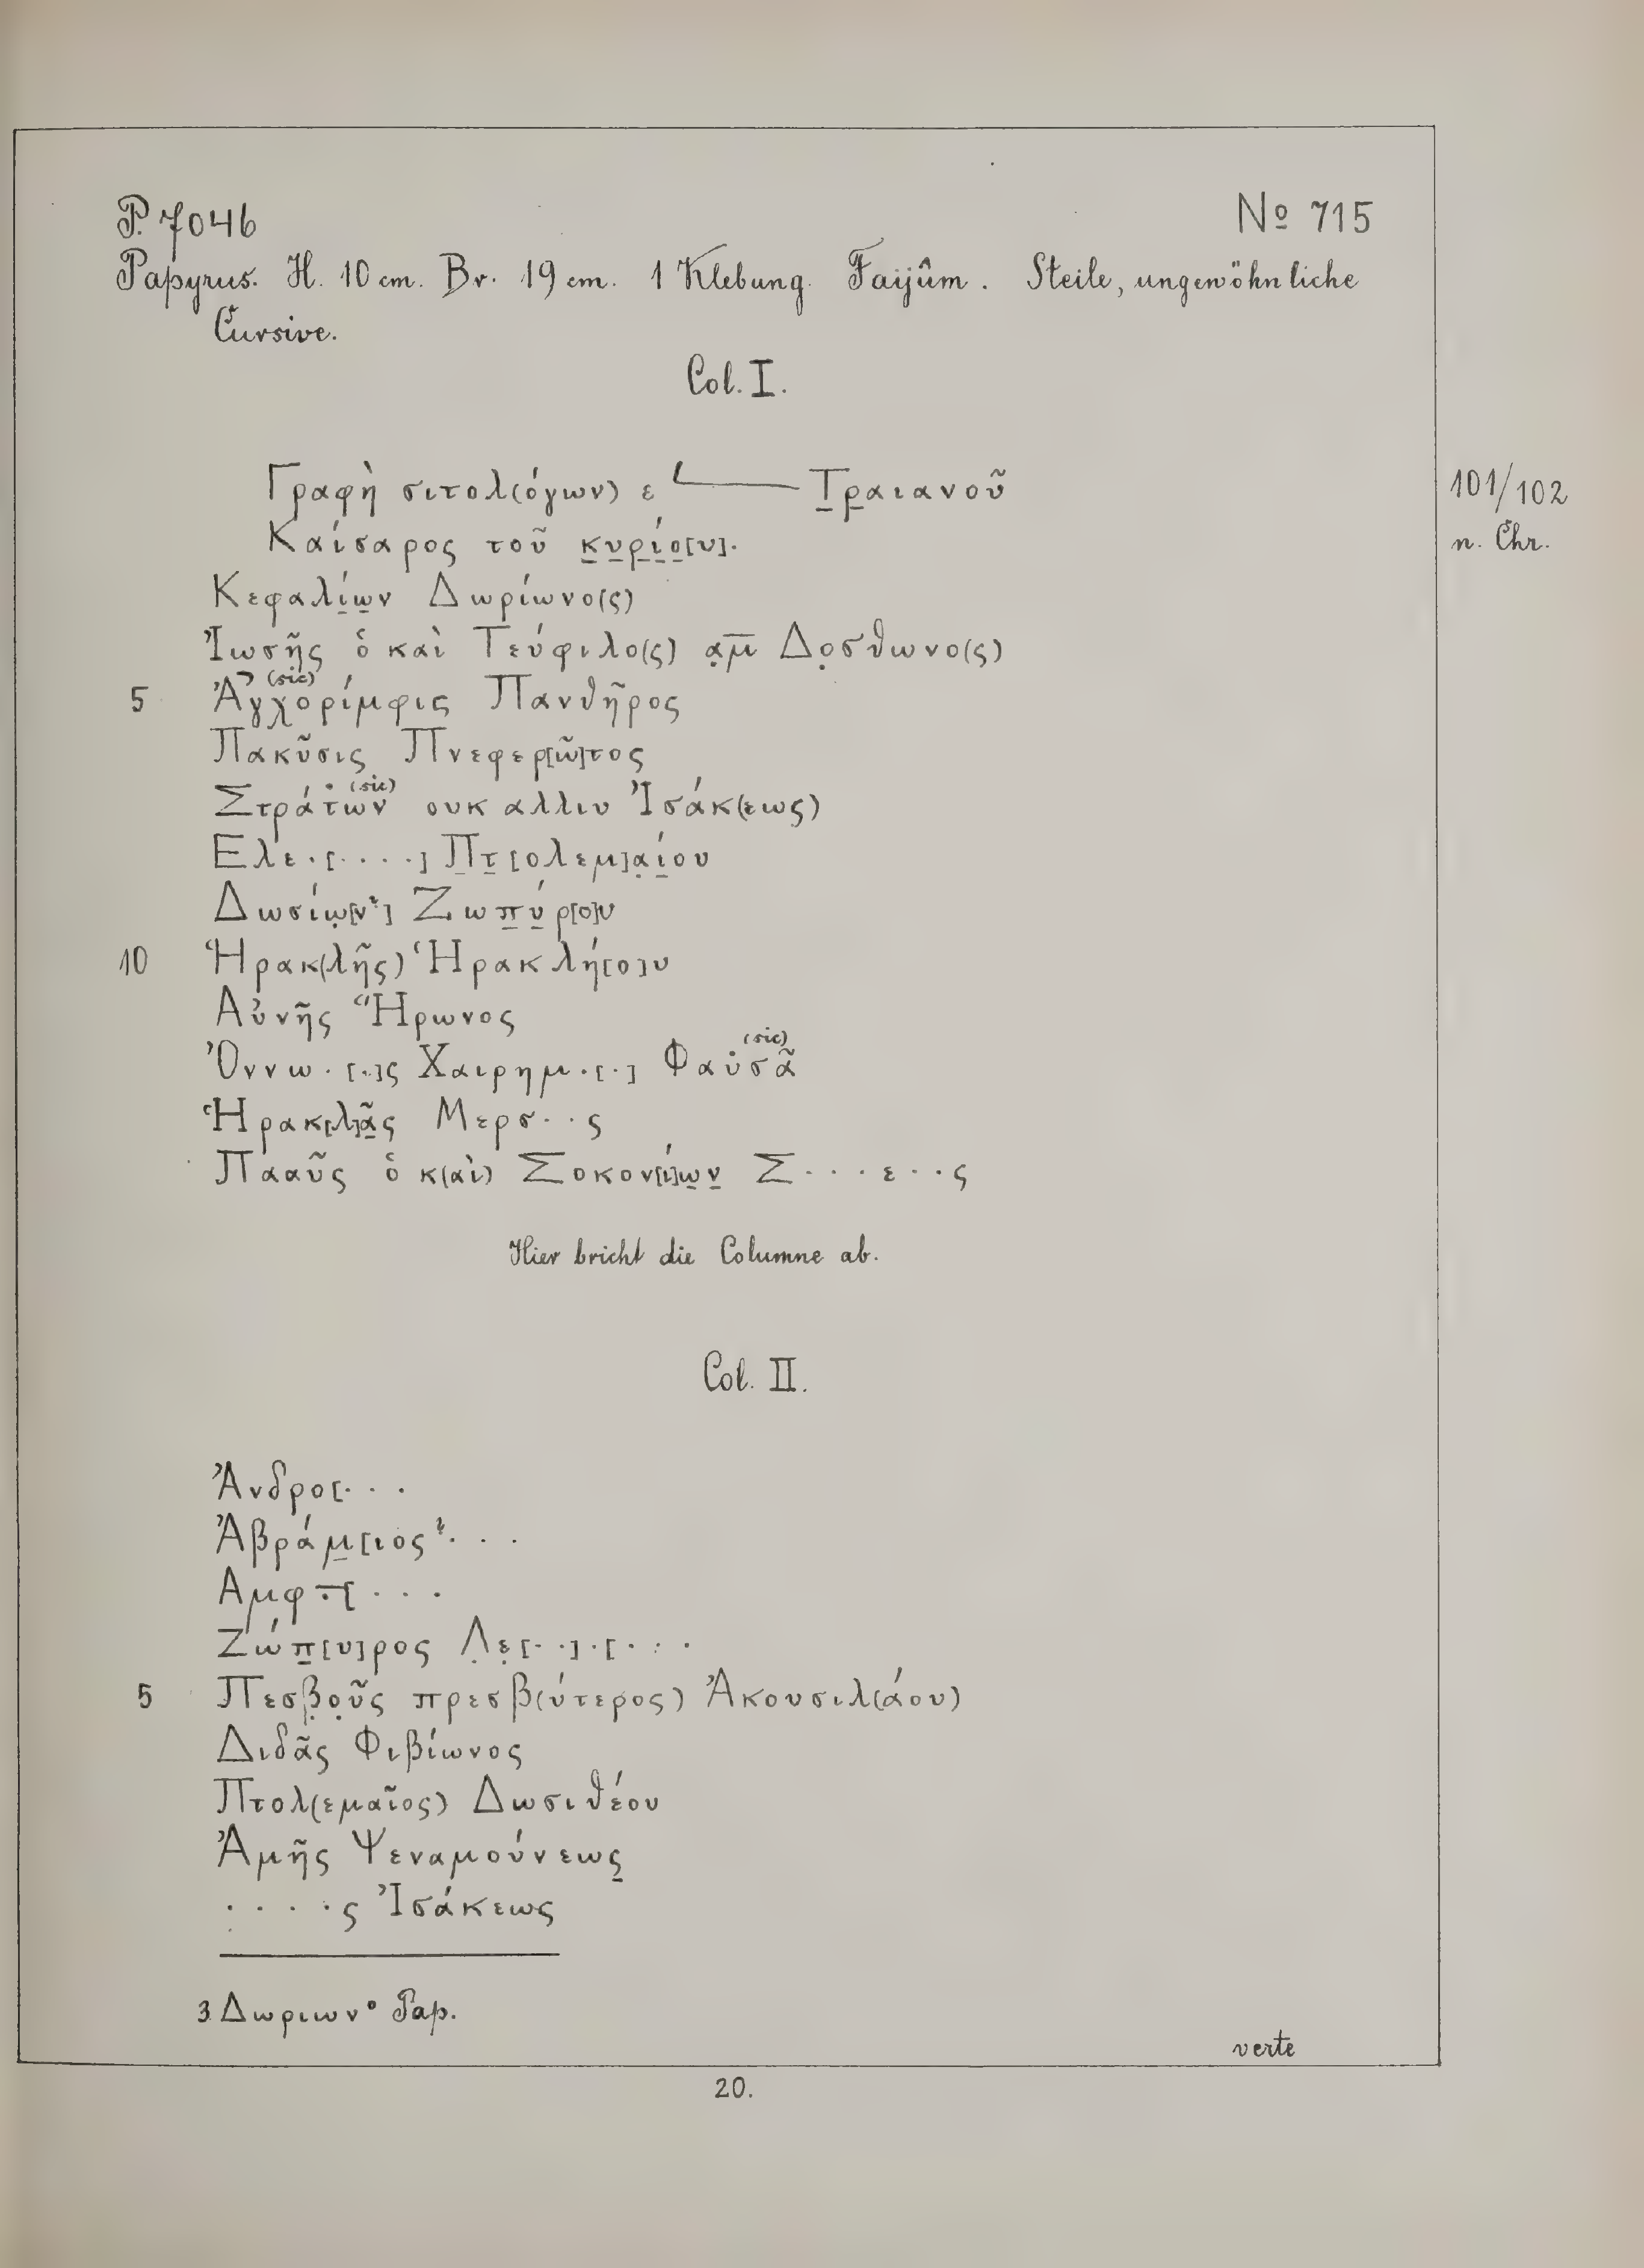 P. 7046 № 715
Papyrus. H. 10 cm. Br. 19 cm. 1 Klebung. Faijûm. Steile, ungewöhnliche
Cursive.
Col. I.
Γραφὴ σιτολ(όγων) ε L Τραιανοῦ 101/102
Καίσαρος τοῦ κυρίο[υ]. n. Chr.
Κεφαλίων Δωρίωνο(ς)
Ἰωσῆς ὁ καὶ Τεύφιλο(ς) Δοσθωνο(ς)
5 Ἀγχορίμφις (sic) Πανθῆρος
Πακῦσις Πνεφερ[ῶ]τος
Στράτων (sic) ουκ αλλιυ Ἰσάκ(εως)
Ελε.[....] Πτ[ολεμ]αίου
Δωσίω[ν?] Ζωπύρ[ο]υ
10 Ἡρακ(λῆς) Ἡρακλή[ο]υ
Αὐνῆς Ἥρωνος
Ὀννω.[.]ς Χαιρημ.[.] Φαὐσᾶ (sic)
Ἡρακ[λ]ᾶς Μερσ..ς
Πααῦς ὁ κ(αὶ) Σοκον[ί]ων Σ...ε..ς
Hier bricht die Columne ab.
Col. II.
Ἀνδρο[...
Ἀβράμ[ιος?...
Αμφ
Ζώπ[υ]ρος Λε[..].[...
5 Πεσβοῦς πρεσβ(ύτερος) Ἀκουσιλ(άου)
Διδᾶς Φιβίωνος
Πτολ(εμαῖος) Δωσιθέου
Ἀμῆς Ψεναμούνεως
....ς Ἰσάκεως
3 Δωριωνο Pap.
verte
20.